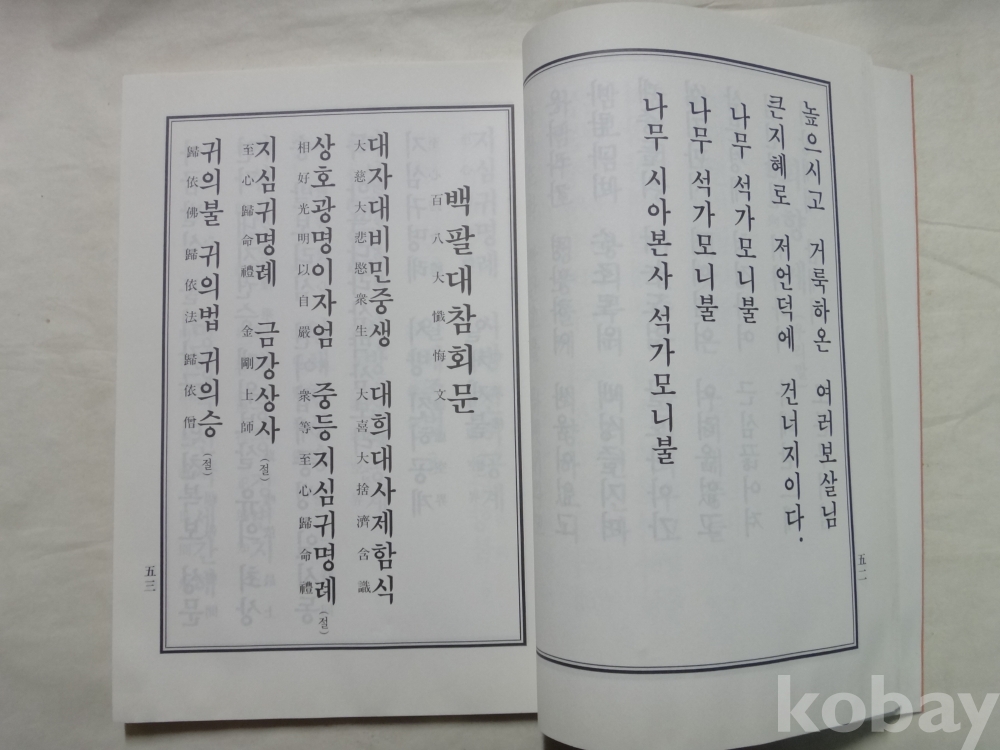 높으시고 거룩하온 여러보살님
큰지혜로 저언덕에 건너지이다.
나무 석가모니불
나무 석가모니불
나무 시아본사 석가모니불
五二
백팔대참회문
百八大懺悔文
대자대비민중생 대희대사제함식
大慈大悲愍衆生 大喜大捨濟含識
상호광명이자엄 중등지심귀명례 (절)
相好光明以自嚴 衆等至心歸命禮
지심귀명례 금강상사 (절)
至心歸命禮 金剛上師
귀의불 귀의법 귀의승 (절)
歸依佛 歸依法 歸依僧
五三
kobay